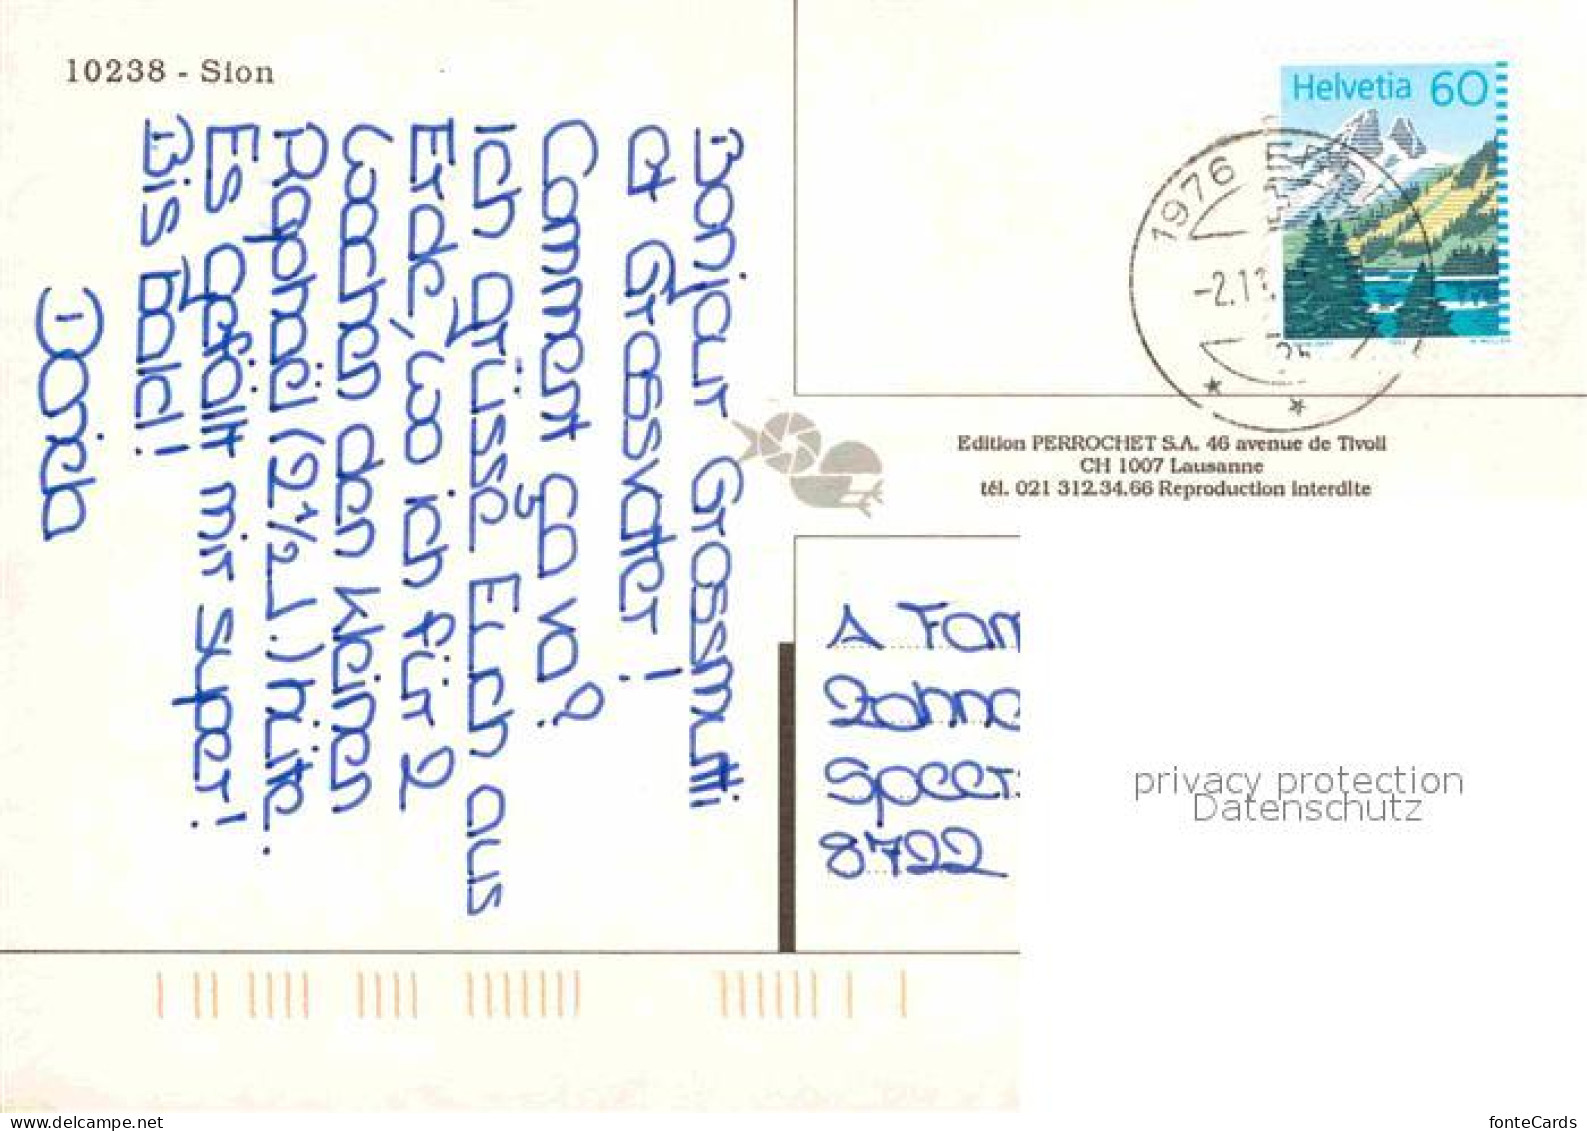 10238 - Sion
Bonjour Grossmutti
et Grossvater !
Comment ça va ?
Ich grüsse Euch aus
Erde, wo ich für 2
Wochen den kleinen
Raphaël (2 1/2 J.) hüte.
Es gefällt mir super!
Bis bald!
Helvetia 60
1976
-2.11
Edition PERROCHET S.A. 46 avenue de Tivoli
CH 1007 Lausanne
tél. 021 312.34.66 Reproduction interdite
A Fam
8722
privacy protection
Datenschutz
www.delcampe.net
fonteCards